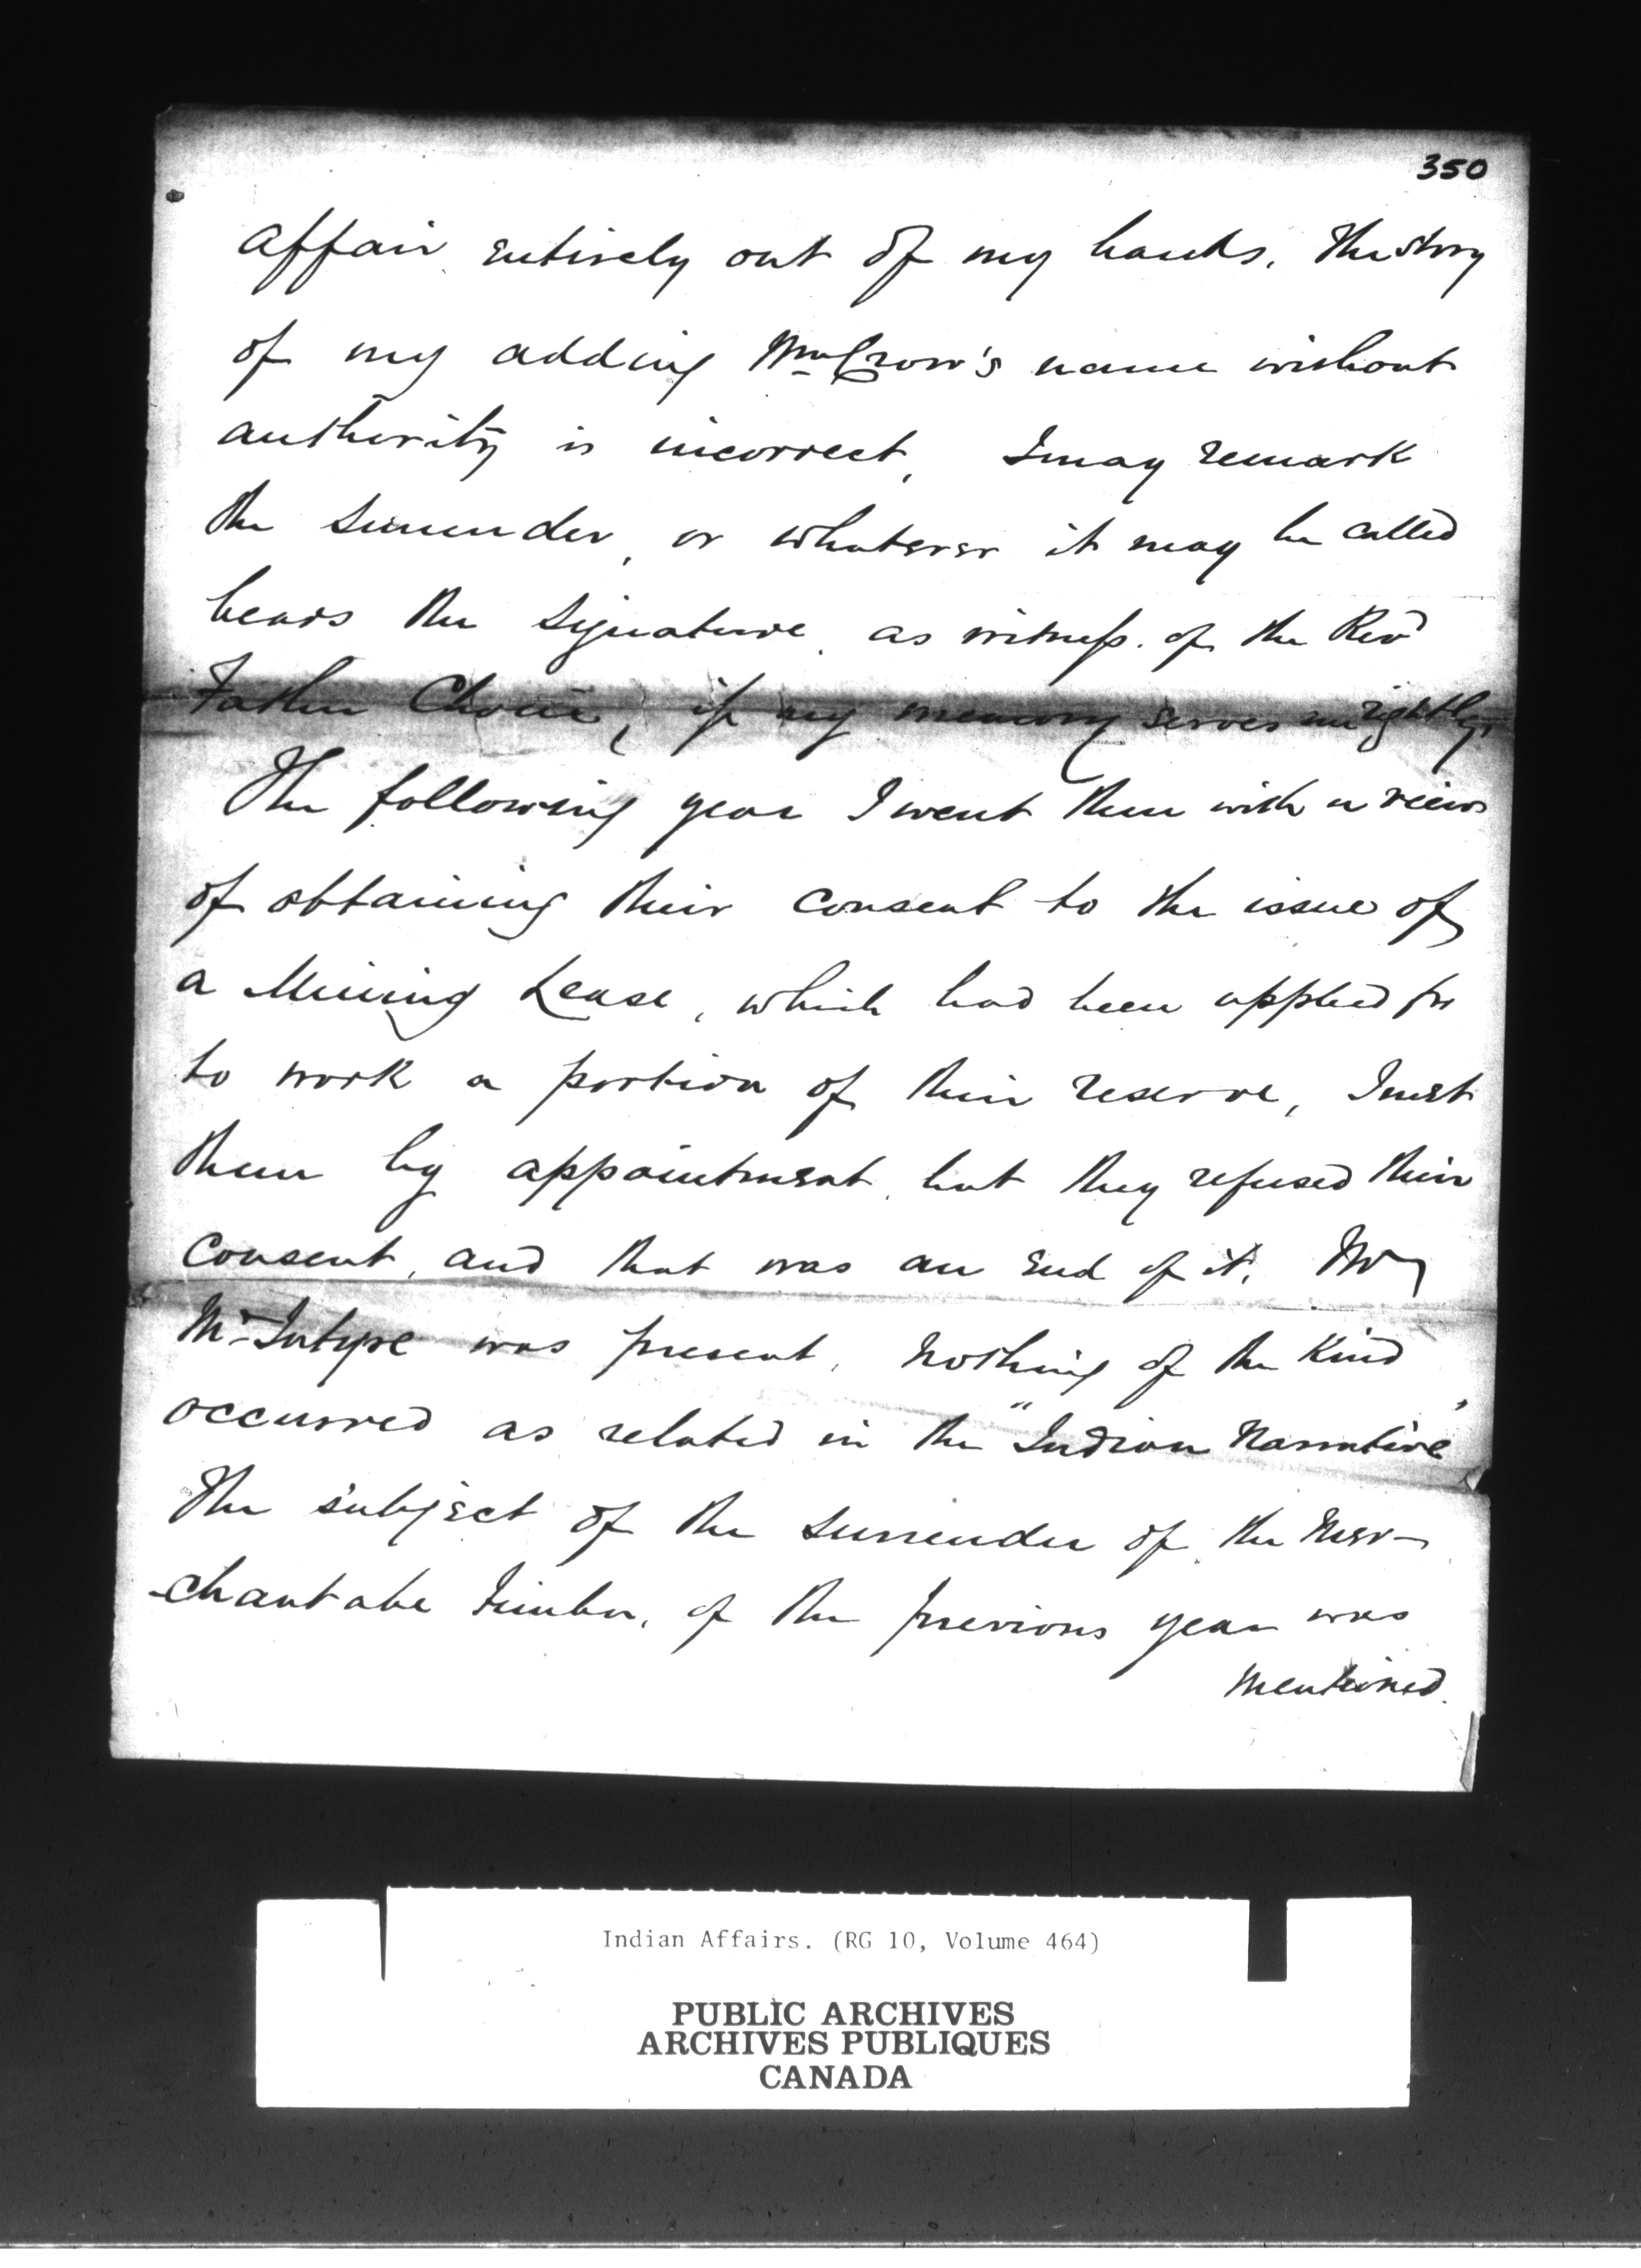 350
affair entirely out of my hands. The story
of my adding Wm Crow's name without
authority is incorrect, I may remark
the Surrender, or whatever it may be called
bears the Signature, as witness. of the Revd
Father Choné, if my memory serves me rightly.
The following year I went there with a view
of obtaining their consent to the issue of
a Mining Lease, which had been applied for
to work a portion of their reserve, I met
them by appointment, but they refused their
consent, and that was an end of it. Mr
McIntyre was present. Nothing of the Kind
occurred as related in the "Indian Narrative"
The subject of the Surrender of the Mer-
-chantabe Timber, of the previous year was
mentioned.
Indian Affairs. (RG 10, Volume 464)
PUBLIC ARCHIVES
ARCHIVES PUBLIQUES
CANADA